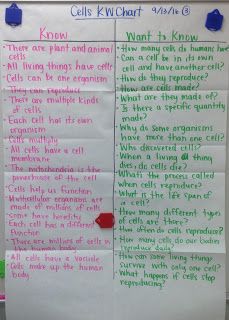 Cells KW Chart 9/13/16 ③
Know
There are plant and animal
cells
All living things have cells
Cells can be one organism
They can reproduce
There are multiple kinds
of cells
Each cell has its own
organism
Cells multiply
All cells have a cell
membrane
The mitochondria is the
powerhouse of the cell
Cells help us function
Multicellular organisms are
made of millions of cells
Some have
Each cell has a different
function
There are millions of cells in
the human body
All cells have a
Cells make up the human
body
Want to Know
How many cells do humans have
Can a cell be in its own
cell and have another cell?
How do they reproduce?
How are cells made?
What are they made of?
Is there a specific quantity
made?
Why do some organisms
have more than one cell?
Who discovered cells?
When a living thing
dies do cells die?
What's the process called
when cells reproduce?
What is the life span of
a cell?
How many different types
of cells are there?
How often do cells reproduce?
How many cells do our bodies
reproduce daily?
How can some living things
survive with only one cell?
What happens if cells stop
reproducing?